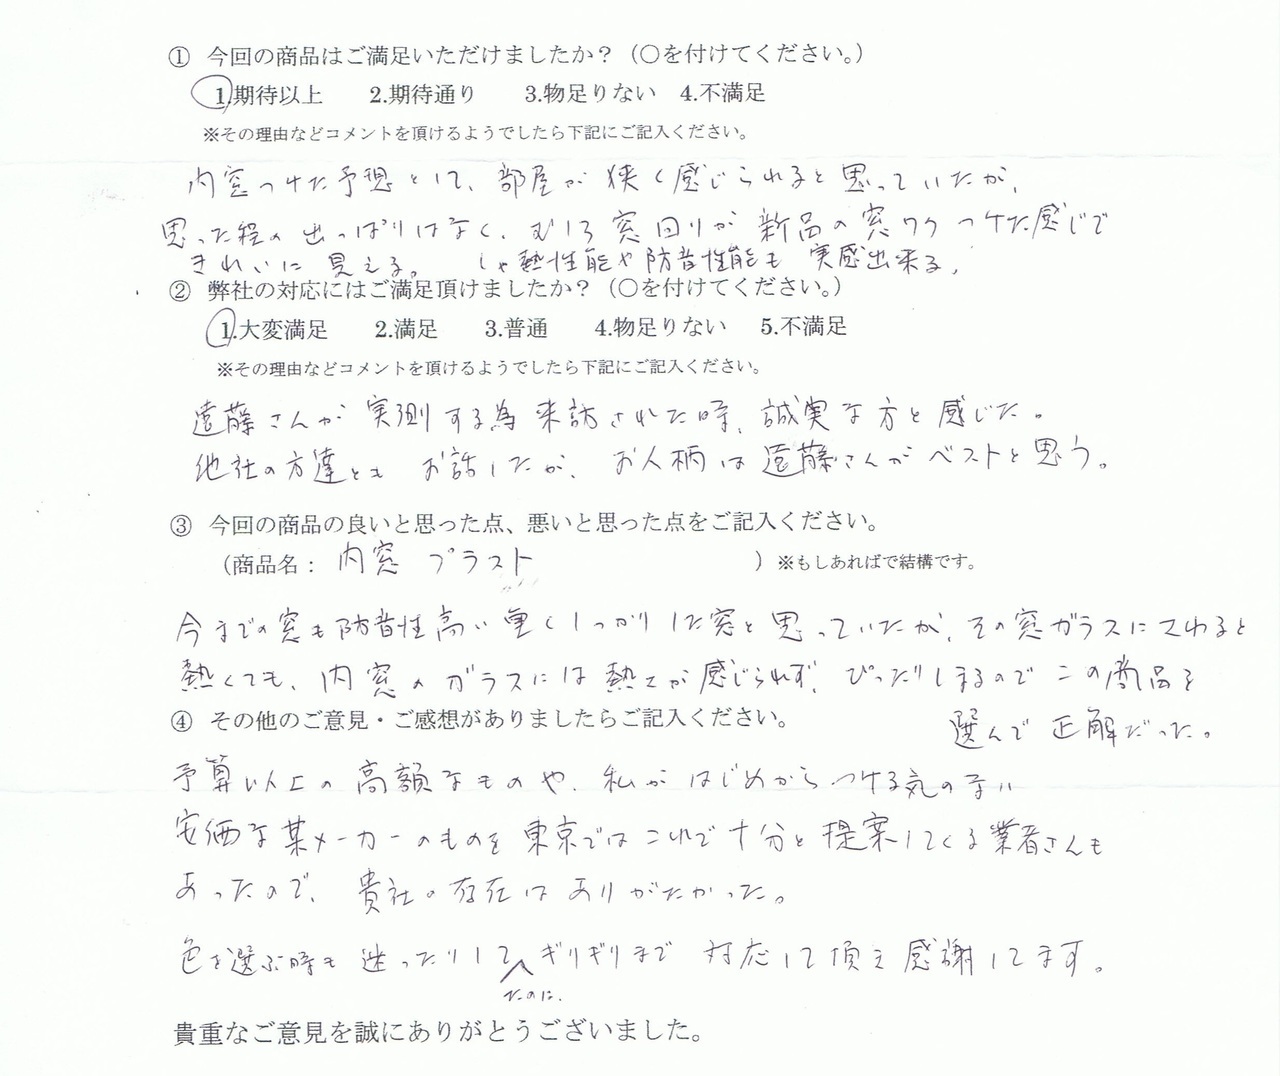 ① 今回の商品はご満足いただけましたか？（○を付けてください。）
1.期待以上　2.期待通り　3.物足りない　4.不満足
※その理由などコメントを頂けるようでしたら下記にご記入ください。
内窓つけた予想として、部屋が狭く感じられると思っていたが、
思った程の出っぱりはなく、むしろ窓回りが新品の窓ワクつけた感じで
きれいに見える。しゃ熱性能や防音性能も実感出来る。
② 弊社の対応にはご満足頂けましたか？（○を付けてください。）
1.大変満足　2.満足　3.普通　4.物足りない　5.不満足
※その理由などコメントを頂けるようでしたら下記にご記入ください。
遠藤さんが実測する為来訪された時、誠実な方と感じた。
他社の方達とも お話したが、お人柄は遠藤さんがベストと思う。
③ 今回の商品の良いと思った点、悪いと思った点をご記入ください。
（商品名： 内窓 プラスト ）※もしあればで結構です。
今までの窓も防音性高い重くしっかりした窓と思っていたが、その窓ガラスにさわると
熱くても、内窓のガラスには熱さが感じられず、ぴったりしまるのでこの商品を
選んで正解だった。
④ その他のご意見・ご感想がありましたらご記入ください。
予算以上の高額なものや、私がはじめからつける気のない
安価な某メーカーのものを東京ではこれで十分と提案してくる業者さんも
あったので、貴社の存在はありがたかった。
色を選ぶ時も迷ったりしてたのに、ギリギリまで対応して頂き感謝してます。
貴重なご意見を誠にありがとうございました。